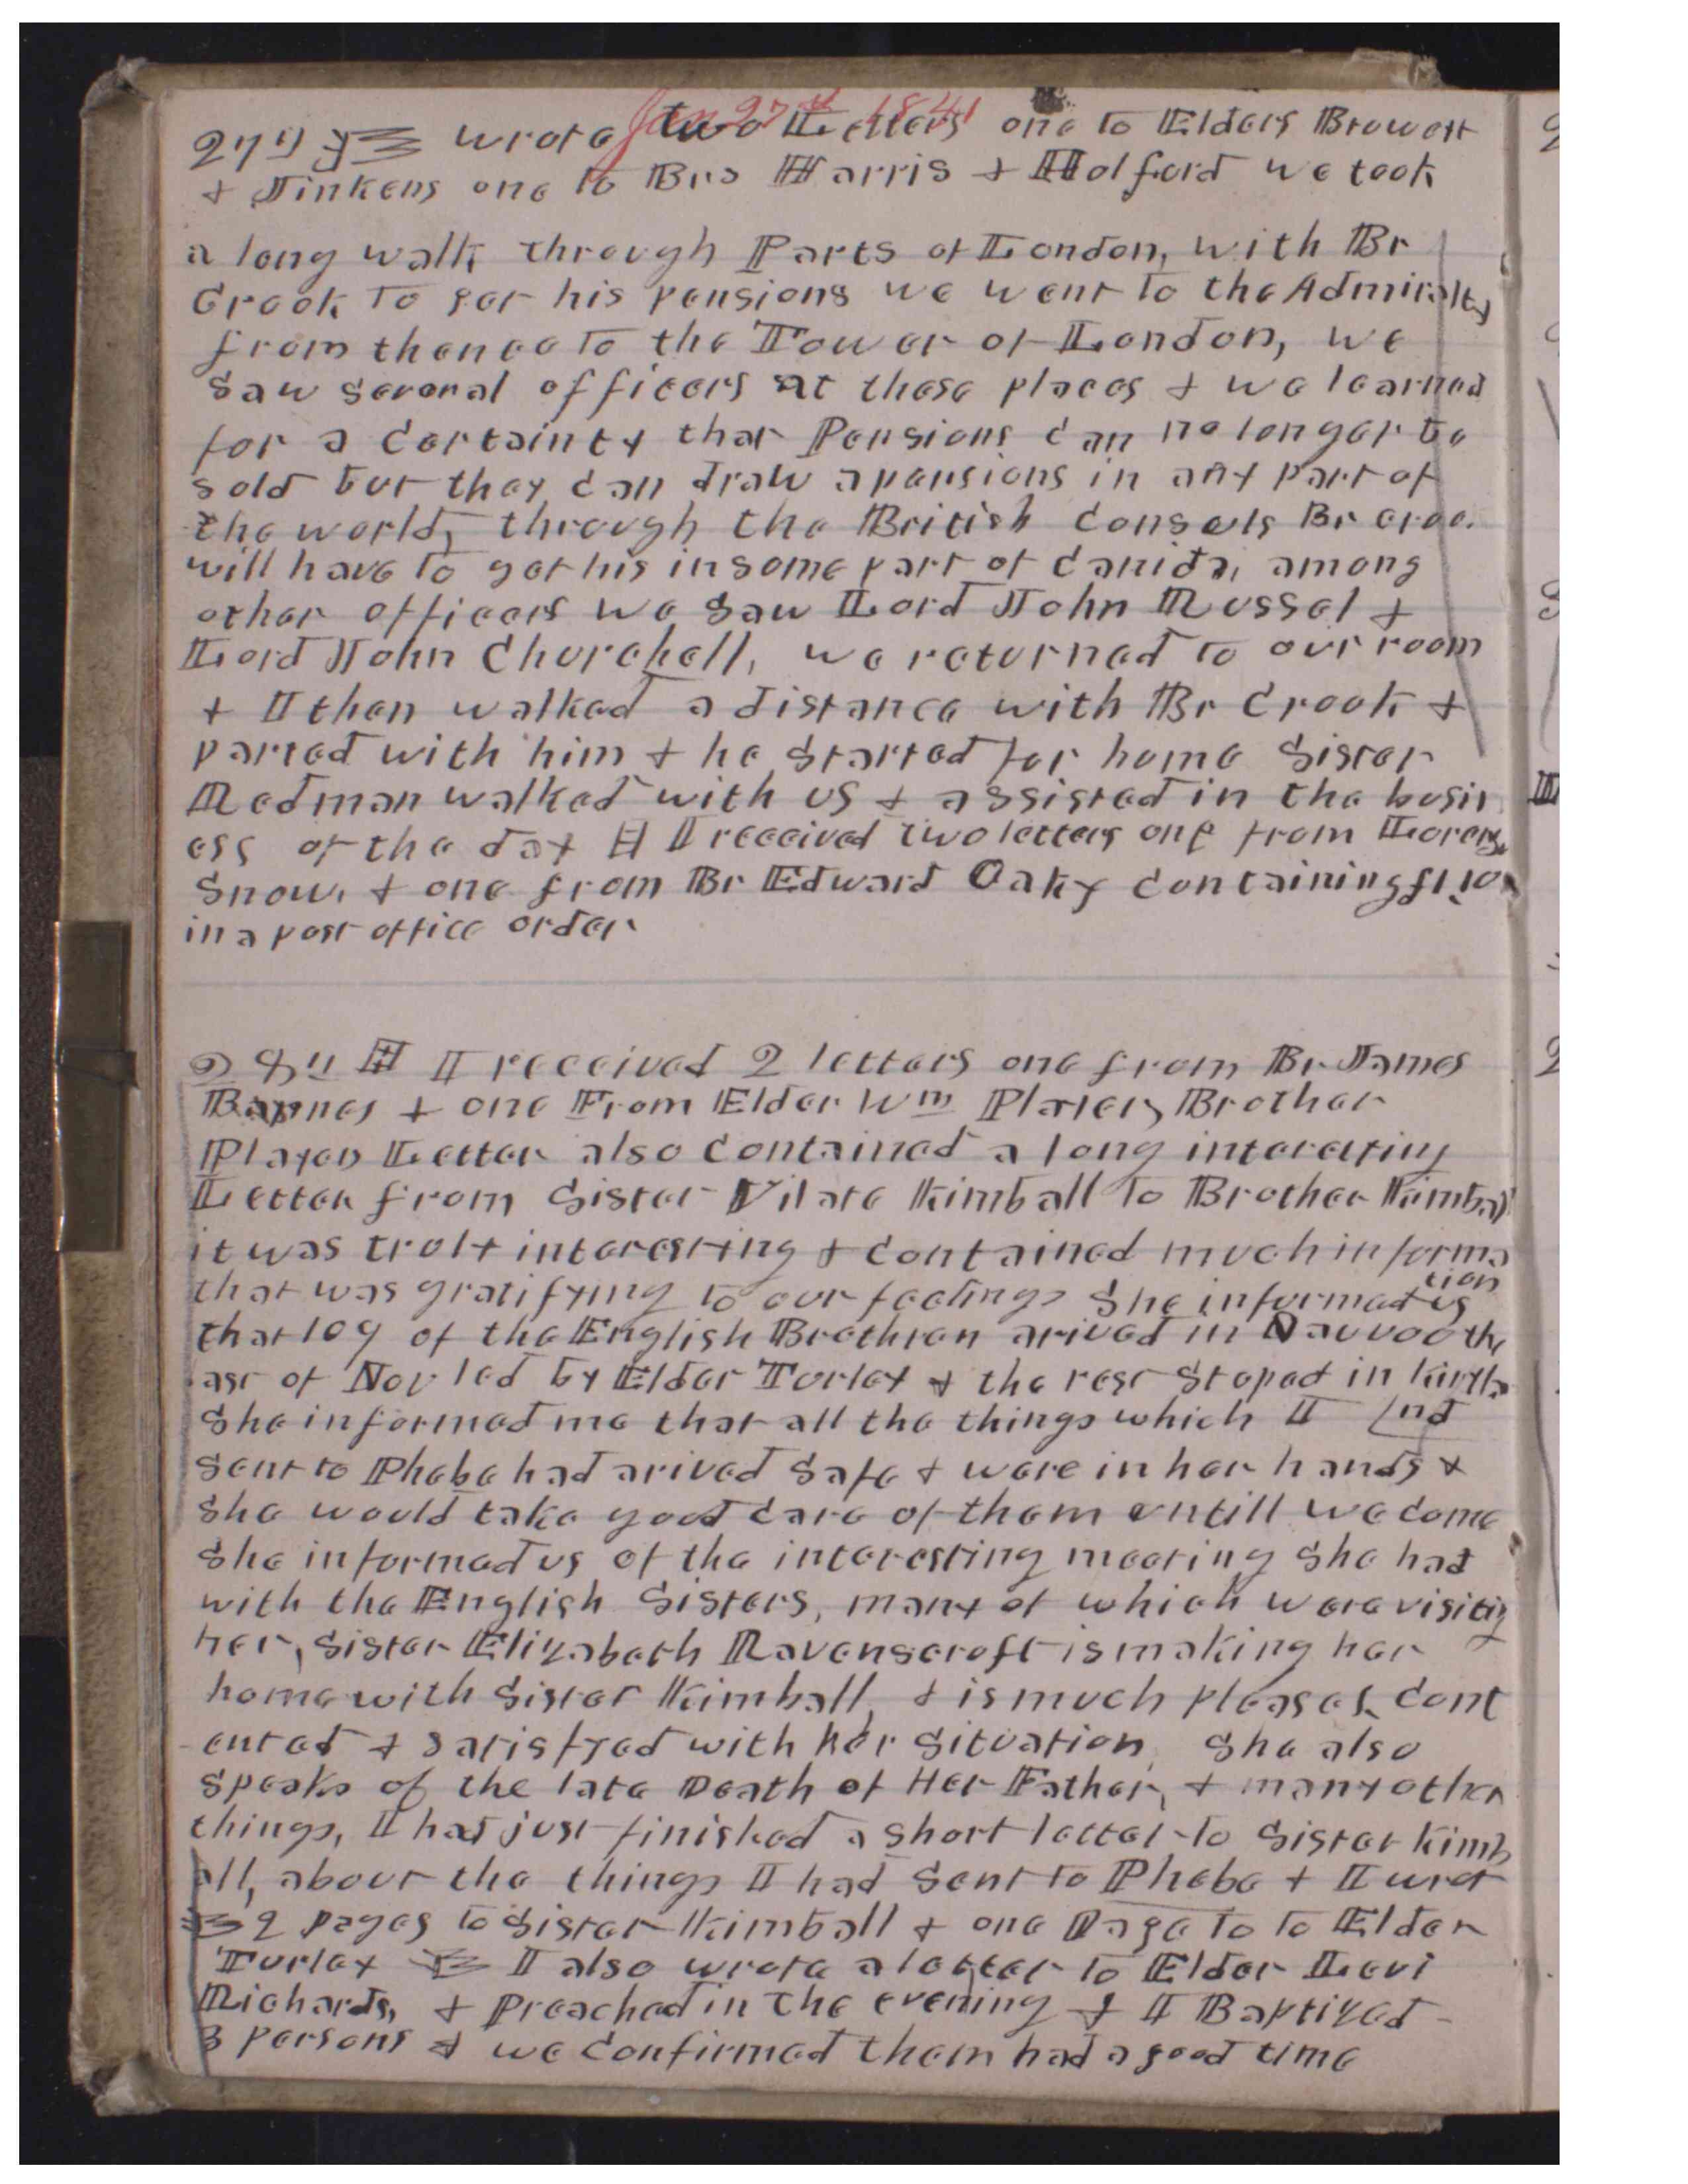 Jan 27th 1841
27th wrote two Letters one to Elders Browett
& Jinkens one to Brs Harris & Holford we took
a long walk through Parts of London, with Br
Crook to get his pensions we went to the Admiralty
from thence to the Tower of London, we
saw several officers at these places & we learned
for a certainty that Pensions can no longer be
sold but they can draw a pensions in any part of
the world, through the British consuls Br Croo
will have to get his in some part of canida, among
other officers we saw Lord John Russel &
Lord John Churchell, we returned to our room
& I then walked a distance with Br Crook &
parted with him & he started for home Sister
Redman walked with us & assisted in the busin
ess of the day I received two letters one from Lorenzo
Snow, & one from Br Edward Oaky containing £1.10
in a post office order
28th I received 2 letters one from Br James
Barnes & one From Elder Wm Player, Brother
Players Letter also contained a long interesting
Letter from Sister Vilate Kimball to Brother Kimball
it was truly interesting & contained much informa
tion
that was gratifying to our feelings She informed us
that 109 of the English Brethren arived in Nauvoo the
last of Nov led by Elder Turley & the rest stoped in Kirtla
nd
She informed me that all the things which I
sent to Phebe had arived safe & were in her hands &
she would take good care of them untill we come
she informed us of the interesting meeting she had
with the English Sisters, many of which were visiting
her, Sister Elizabeth Ravenscroft is making her
home with Sister Kimball, & is much pleased, cont
ented & satisfyed with her situation, She also
speaks of the late Death of Her Father, & many other
things, I had just finished a short letter to Sister Kimb
all, about the things I had sent to Phebe & I wrot
2 pages to Sister Kimball & one Page to to Elder
Turley I also wrote a letter to Elder Levi
Richards, & Preached in the evening & I Baptized
3 persons & we confirmed them had a good time